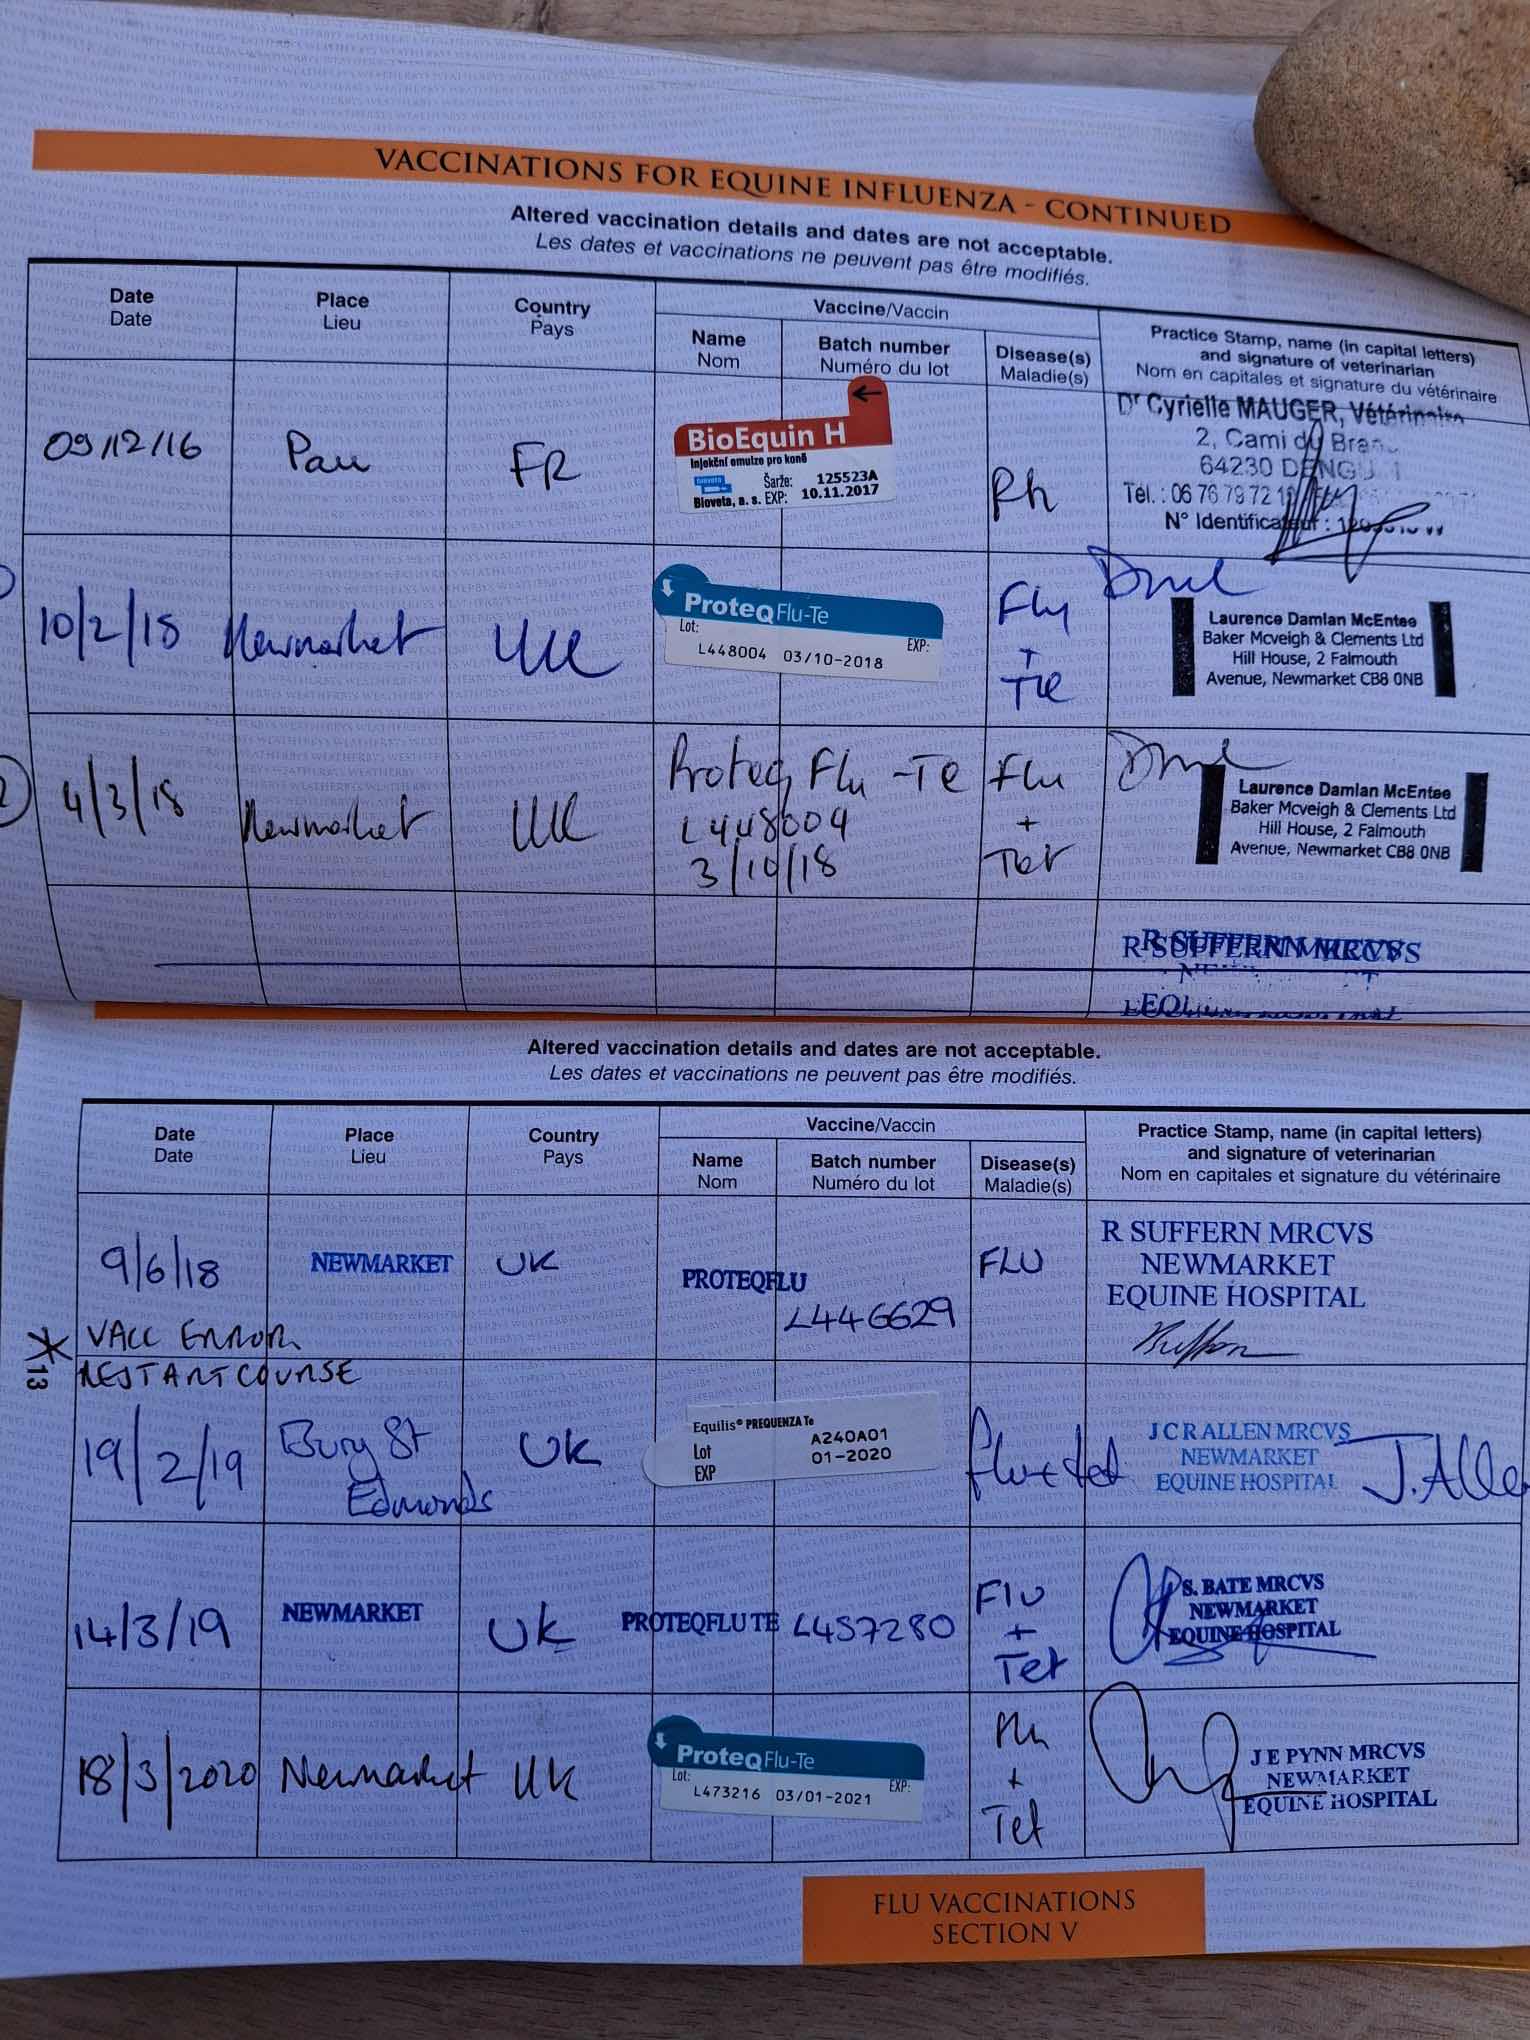 VACCINATIONS FOR EQUINE INFLUENZA - CONTINUED
Altered vaccination details and dates are not acceptable.
Les dates et vaccinations ne peuvent pas être modifiés.
Date
Date
Place
Lieu
Country
Pays
Vaccine/Vaccin
Name
Nom
Batch number
Numéro du lot
Disease(s)
Maladie(s)
Practice Stamp, name (in capital letters)
and signature of veterinarian
Nom en capitales et signature du vétérinaire
09/12/16
Pau
FR
BioEquin H
Injekční emulze pro koně
Šarže: 125523A
Bioveta, a. s. EXP: 10.11.2017
Rh
Dr Cyrielle MAUGER, Vétérinaire
2, Cami du
64230
Tél. : 06 76 79 72
N° Identificateur :
10/2/18
Newmarket
UK
ProteqFlu-Te
Lot: EXP:
L448004 03/10-2018
Flu
+
Te
Laurence Damian McEntee
Baker Mcveigh & Clements Ltd
Hill House, 2 Falmouth
Avenue, Newmarket CB8 0NB
2
4/3/18
Newmarket
UK
Proteq Flu -Te
L448004
3/10/18
Flu
+
Tet
Laurence Damian McEntee
Baker Mcveigh & Clements Ltd
Hill House, 2 Falmouth
Avenue, Newmarket CB8 0NB
R SUFFERN MRCVS
Altered vaccination details and dates are not acceptable.
Les dates et vaccinations ne peuvent pas être modifiés.
Date
Date
Place
Lieu
Country
Pays
Vaccine/Vaccin
Name
Nom
Batch number
Numéro du lot
Disease(s)
Maladie(s)
Practice Stamp, name (in capital letters)
and signature of veterinarian
Nom en capitales et signature du vétérinaire
9/6/18
NEWMARKET
UK
PROTEQFLU
L446629
FLU
R SUFFERN MRCVS
NEWMARKET
EQUINE HOSPITAL
VACC ERROR
RESTART COURSE
13
19/2/19
Bury St
Edmunds
UK
Equilis® PREQUENZA Te
Lot A240A01
EXP 01-2020
flu + tet
J C R ALLEN MRCVS
NEWMARKET
EQUINE HOSPITAL
J. Allen
14/3/19
NEWMARKET
UK
PROTEQFLU TE
L457280
Flu
+
Tet
S. BATE MRCVS
NEWMARKET
EQUINE HOSPITAL
18/3/2020
Newmarket
UK
ProteqFlu-Te
Lot: EXP:
L473216 03/01-2021
Flu
+
Tet
J E PYNN MRCVS
NEWMARKET
EQUINE HOSPITAL
FLU VACCINATIONS
SECTION V